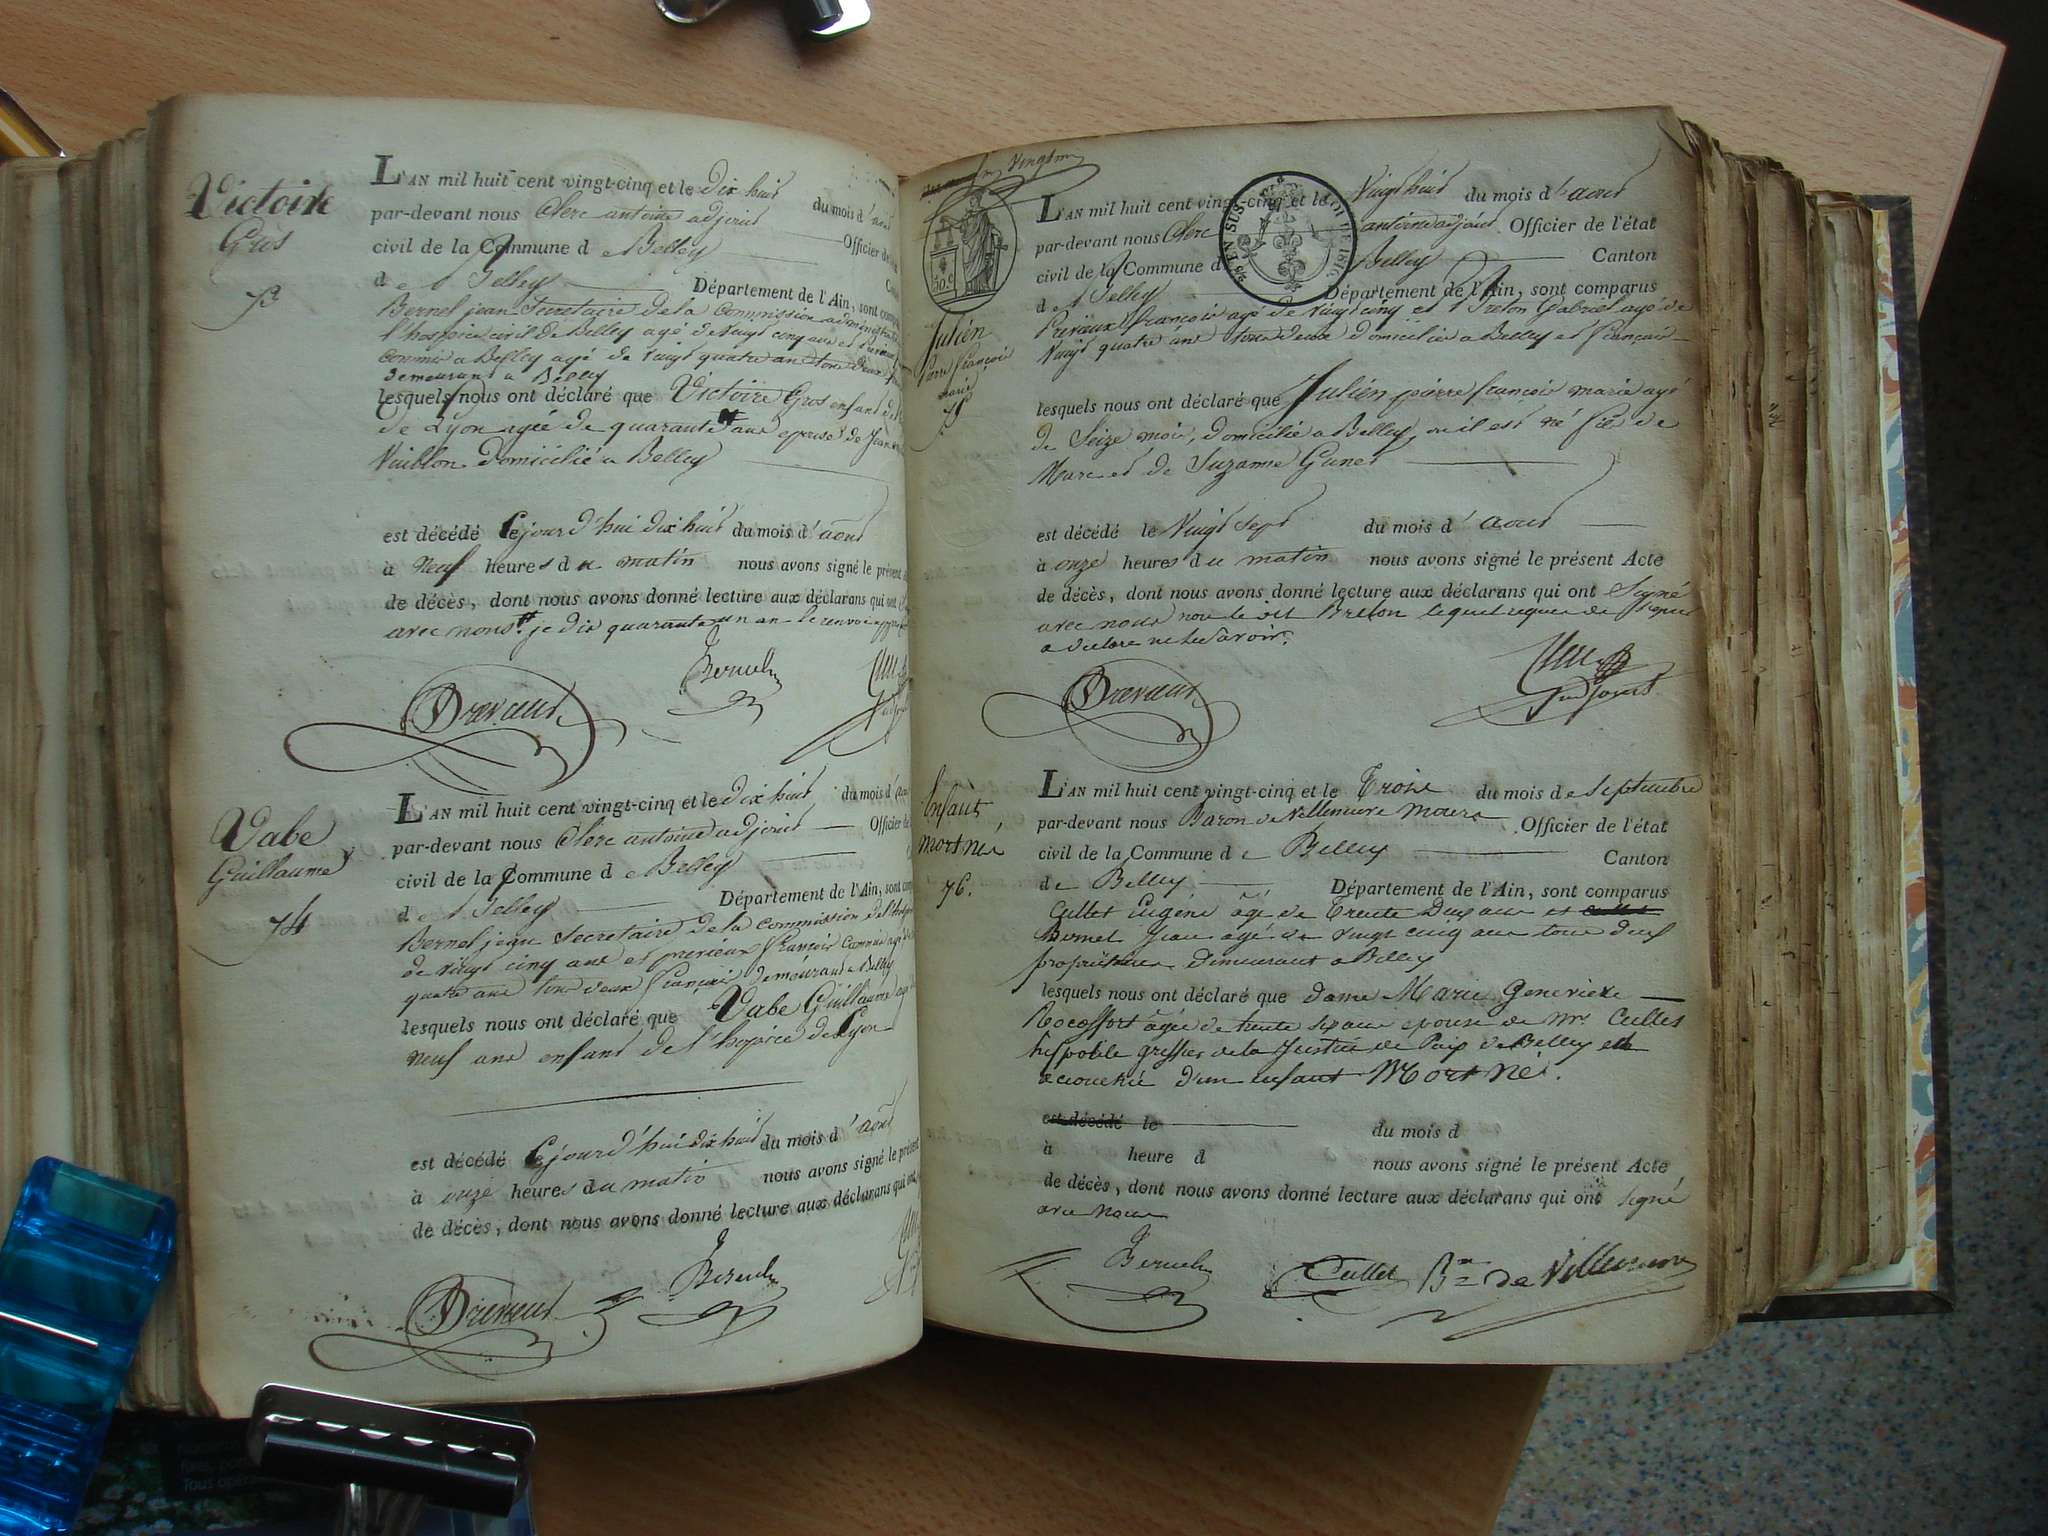 Victoire
Gros
L'AN mil huit cent vingt-cinq et le dix huit du mois d'aout
par-devant nous Clerc antoine adjoint Officier de
civil de la Commune de Belley
de Belley Département de l'Ain, sont comp
Bernel jean Secretaire de la Commission
l'hospice civil de Belley agé de vingt cinq ans et
commis a Belley agé de vingt quatre ans tous deux
demeurant a Belley
lesquels nous ont déclaré que Victoire Gros enfant de
de Lyon agée de quarante ans epouse de Jean
Vuiblon domicilié a Belley
est décédé Cejourd'hui dix huit du mois d'aout
à neuf heures du matin nous avons signé le présent
de décès, dont nous avons donné lecture aux déclarans qui ont
avec nous. je dis quarante un an le renvoi
Bernel
Vabe
Guillaume
74
L'AN mil huit cent vingt-cinq et le dix huit du mois d'
par-devant nous Clerc antoine adjoint Officier de
civil de la Commune de Belley
de Belley Département de l'Ain, sont comp
Bernel jean Secretaire de la Commission de
de vingt cinq ans et previeux françois Commis agé
quatre ans tous deux français demeurant a Belley
lesquels nous ont déclaré que Vabe Guillaume
neuf ans enfant de l'hospice de Lyon
est décédé Cejourd'hui dix huit du mois d'aout
à onze heures du matin nous avons signé le présent
de décès, dont nous avons donné lecture aux déclarans qui ont
Bernel
50 C
EN SUS
LOI DE 1816
Julién
pierre françois
marie
75
L'AN mil huit cent vingt-cinq et le Vingt huit du mois d'aout
par-devant nous Clerc antoine adjoint Officier de l'état
civil de la Commune d Belley Canton
de Belley Département de l'Ain, sont comparus
Prévieux françois agé de vingt cinq et Breton Gabriel agé de
Vingt quatre ans tous deux domicilié a Belley et français
lesquels nous ont déclaré que Julién pierre françois marie agé
de Seize mois, domicilié a Belley, ou il est né fils de
Marc et de Suzanne Gunet
est décédé le Vingt Sept du mois d'aout
à onze heures du matin nous avons signé le présent Acte
de décès, dont nous avons donné lecture aux déclarans qui ont Signé
avec nous non le dit Breton lequel requis de signer
a declare ne le Savoir.
Enfant
mort né
76.
L'AN mil huit cent vingt-cinq et le Trois du mois de Septembre
par-devant nous Baron de Villeneuve Maire Officier de l'état
civil de la Commune de Belley Canton
de Belley Département de l'Ain, sont comparus
Cullet Eugéne agé de Trente Deux ans et
Bernel Jean agé de vingt cinq ans tous deux
propriétaires demeurant a Belley
lesquels nous ont déclaré que dame Marie Genevieve
Rocoffort agée de trente six ans epouse de Mr. Cullet
hypolite greffier de la Justice de Paix de Belley est
accouchée d'un enfant Mort Né.
est décédé le du mois d
à heure d nous avons signé le présent Acte
de décès, dont nous avons donné lecture aux déclarans qui ont signé
avec nous
Bernel Cullet Bon de Villeneuve